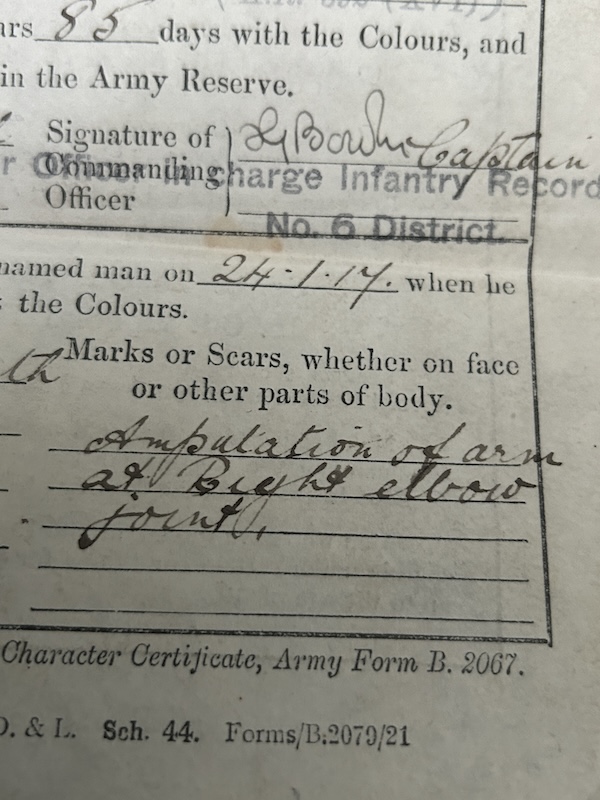 85 days with the Colours, and
in the Army Reserve.
Signature of
Commanding
Officer
Captain
Officer in charge Infantry Record
No. 6 District.
named man on 24.1.17. when he
the Colours.
Marks or Scars, whether on face
or other parts of body.
Amputation of arm
at Right elbow
joint.
Character Certificate, Army Form B. 2067.
& L. Sch. 44. Forms/B.2079/21